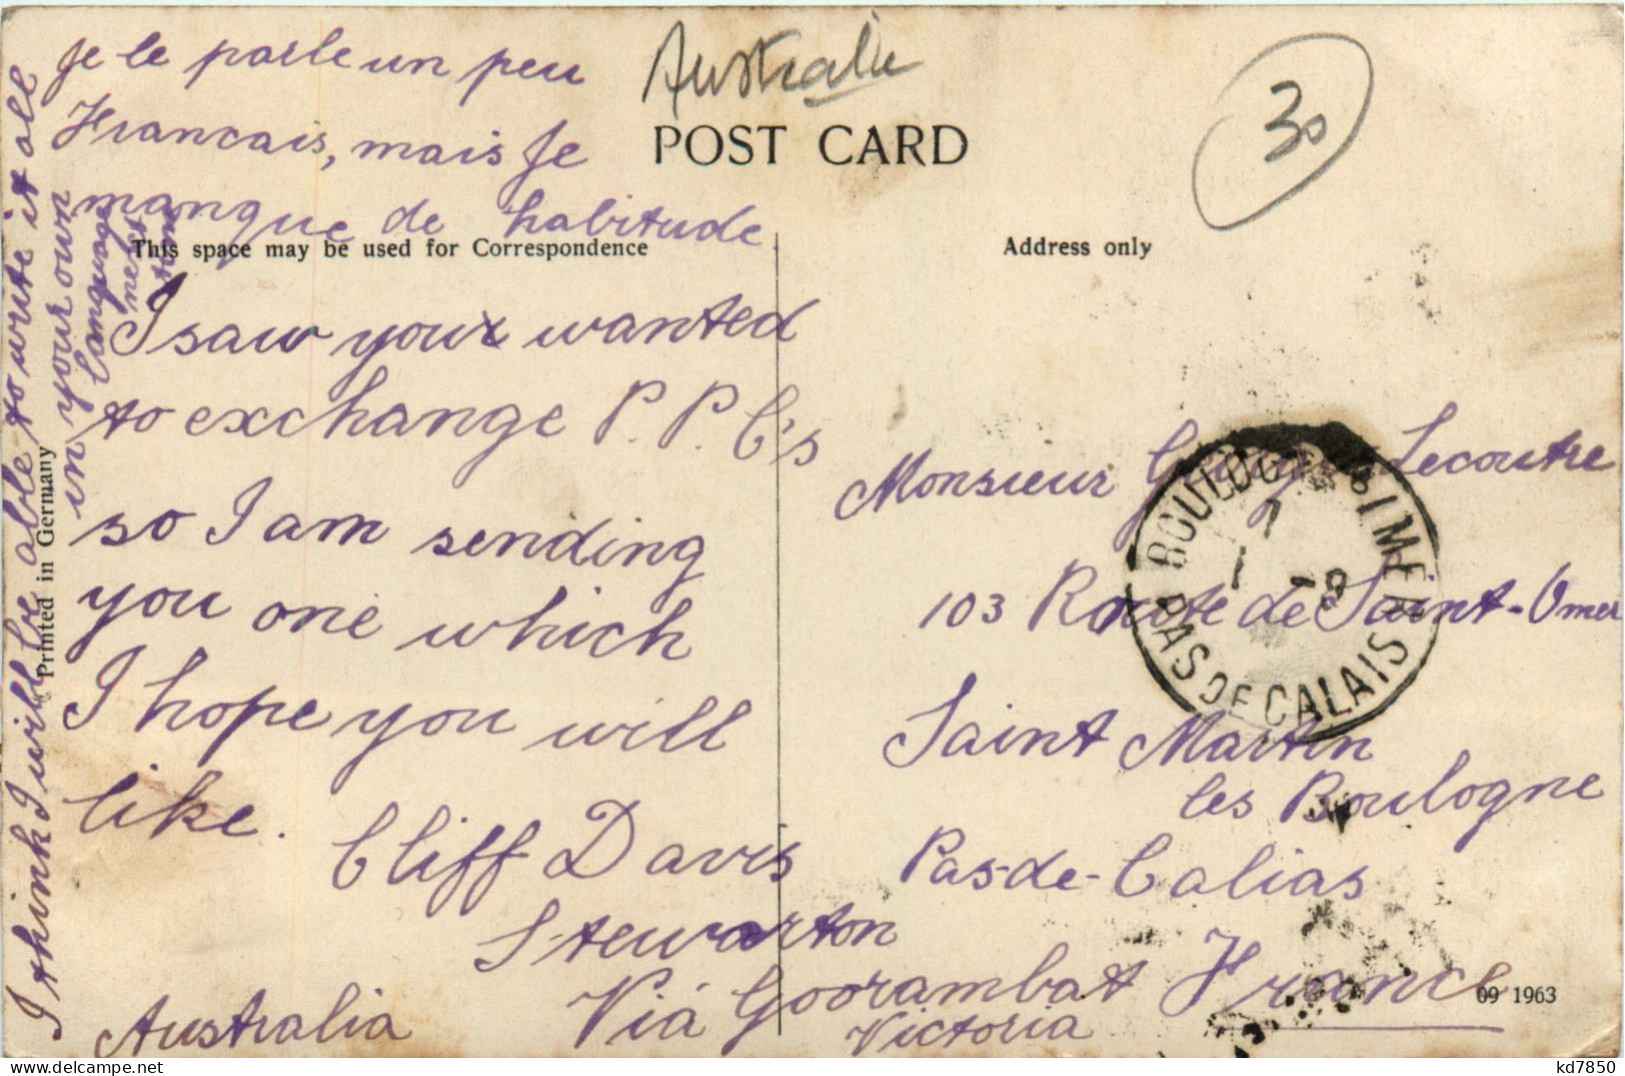 Je le parle un peu
Francais, mais Je
manque de habitude.
Australie
30
POST CARD
This space may be used for Correspondence
Address only
I saw your wanted
to exchange P.P.C's
so I am sending
you one which
I hope you will
like.
Cliff Davis
Stewarton
Viá Goorambat
Victoria
Australia
I think I will be able to write it all
in your own
language
next
time
Printed in Germany
Monsieur Lecoutre
103 Route de Saint-Omer
Saint Martin
les Boulogne
Pas-de-Calias
France
BOULOGNE S MER
1 -9
PAS DE CALAIS
09 1963
www.delcampe.net
kd7850